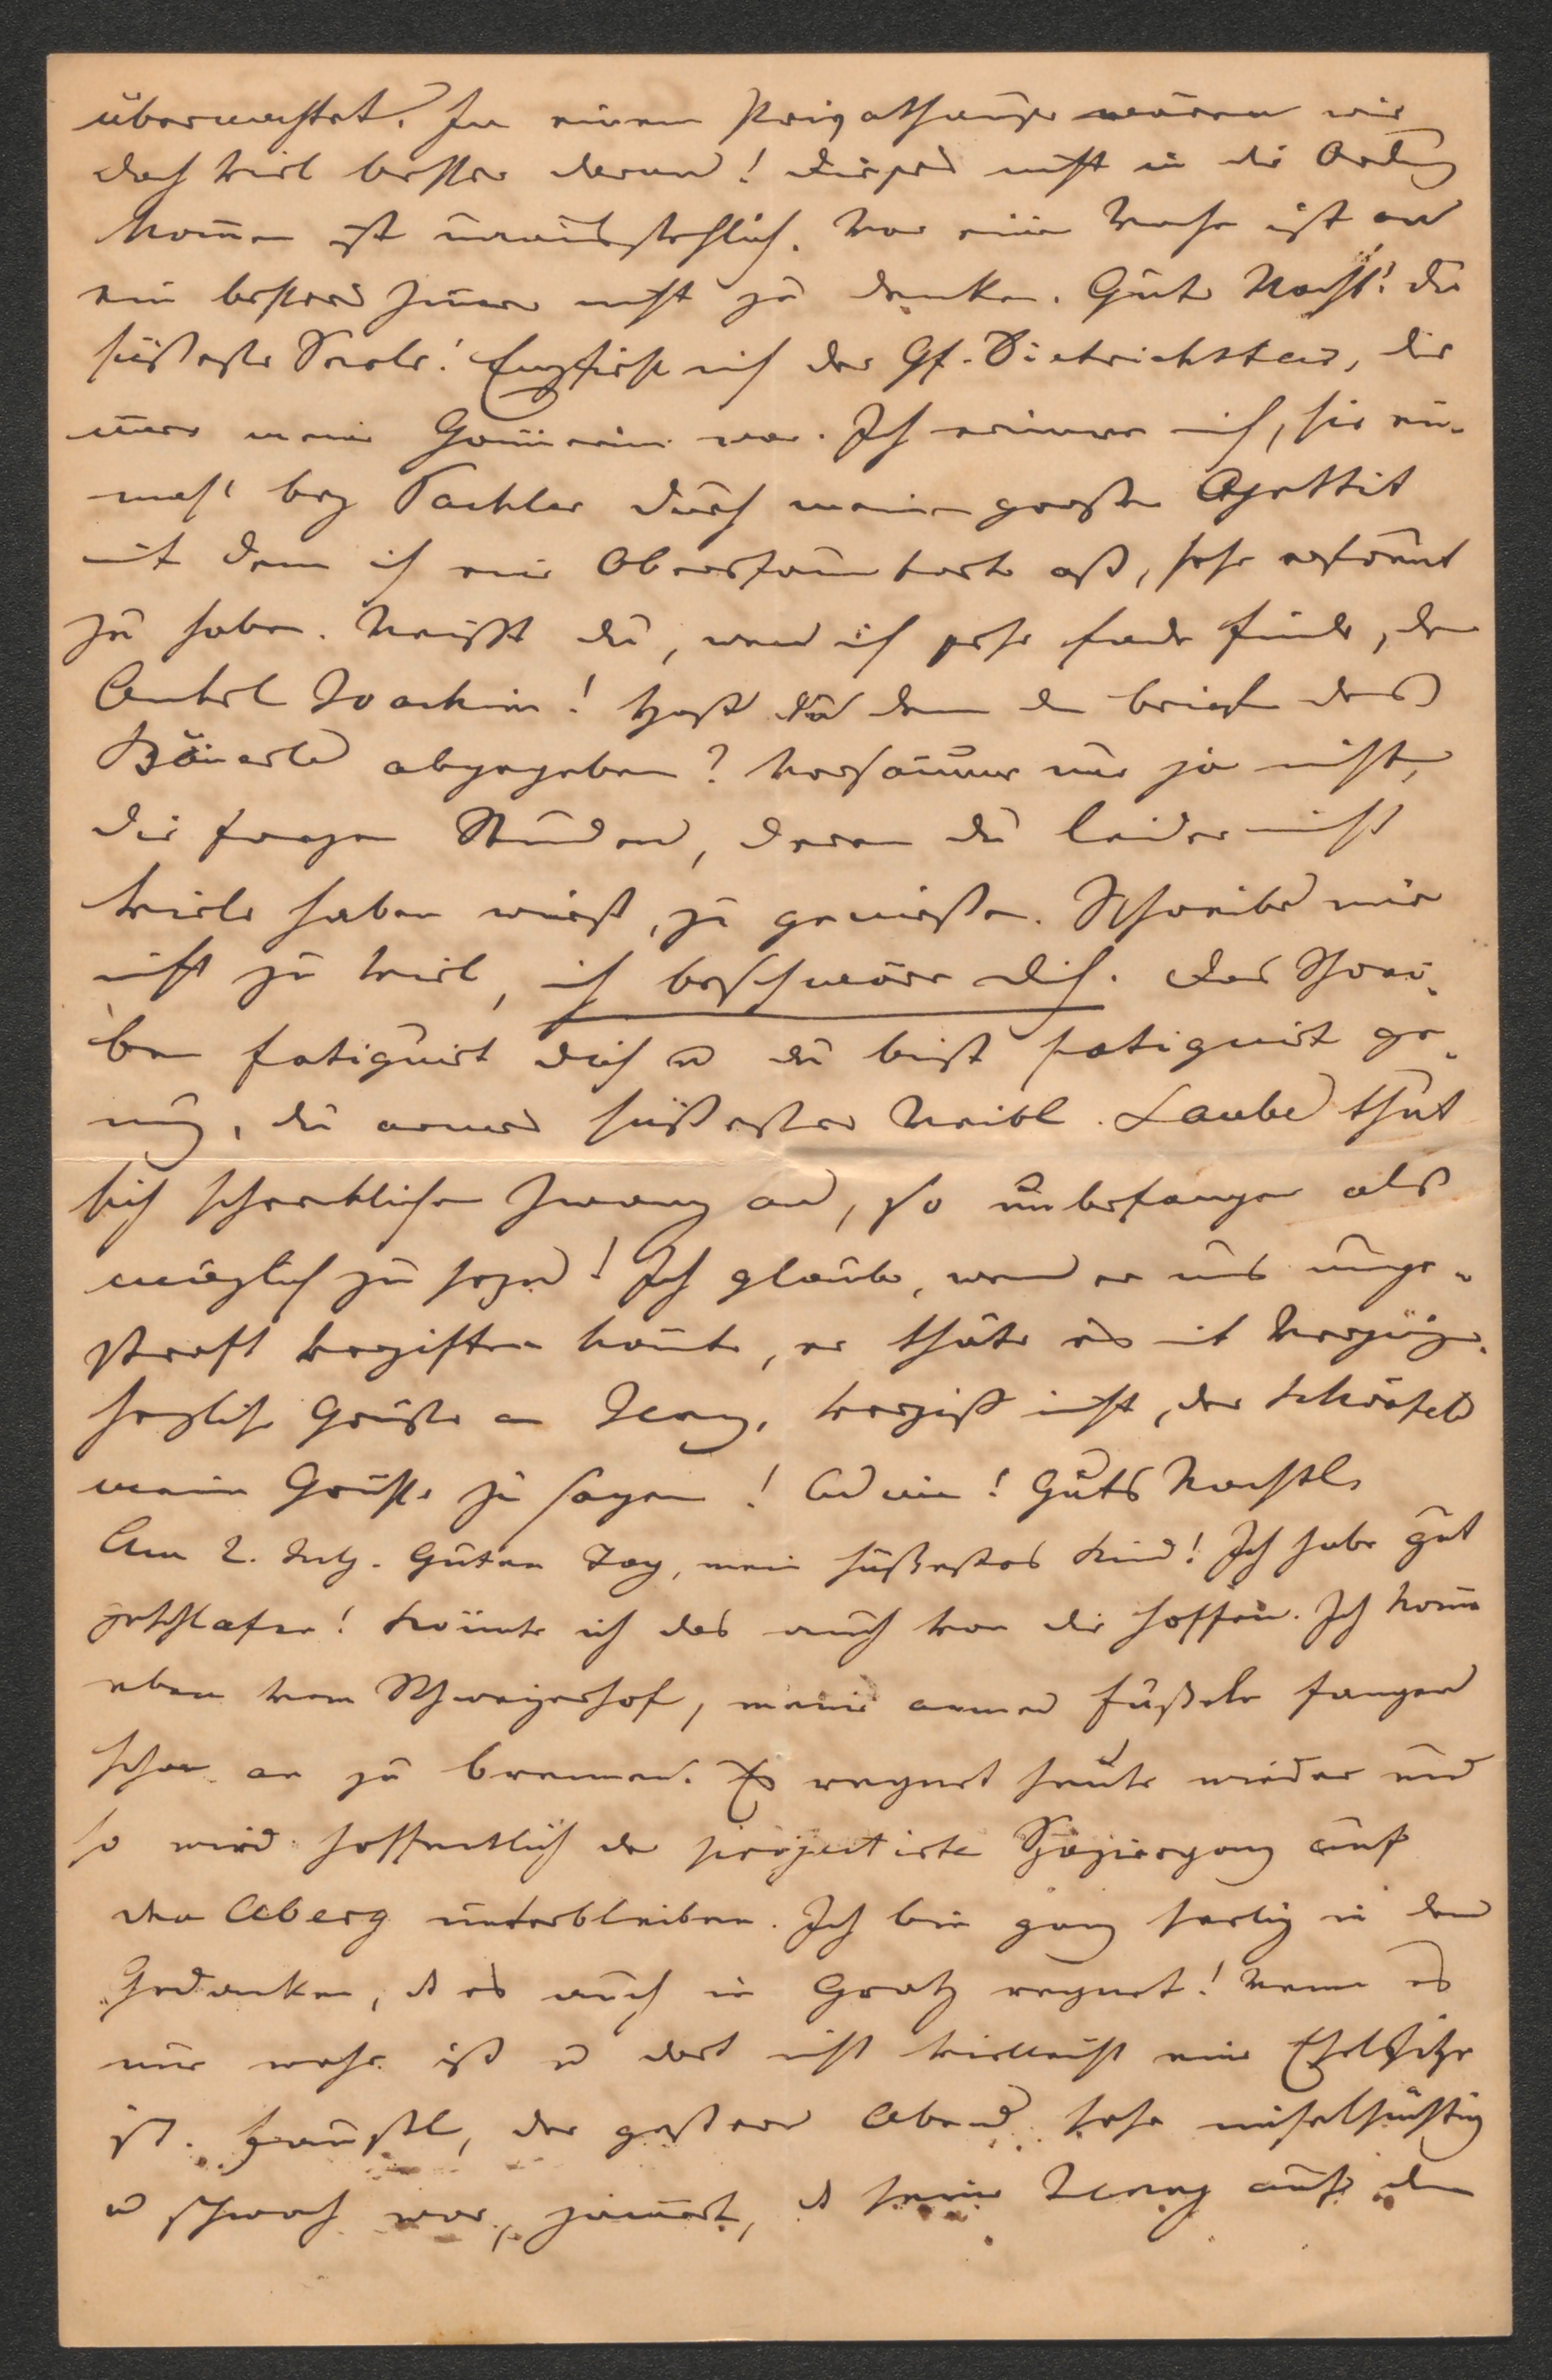 übernachtet. In einem Privathause wären wir
doch viel besser daran! Dieses nicht in die Ordng
kom̄en ist unausstehlich. Vor einer Woche ist an
ein besseres Zim̄er nicht zu denken. Gute Nacht! du
süßeste Seele! Empfiehl mich der Gf. Dietrichstein, die
im̄er meine Gön̄erin war. Ich erinnere mich, sie ein-
mahl bey Pachler durch meinen großen Appettit
mit dem ich eine Obersschaumtorte aß, sehr erstaunt
zu haben. Weißt du, wen ich sehr fade finde, den
Onkel Joachim! Hast du denn den Brief des
Bäuerle abgegeben? Versäume nur ja nicht,
die freyen Stunden, deren du leider nicht
viele haben wirst, zu genießen. Schreibe mir
nicht zu viel, ich beschwöre dich. Das Schrei-
ben fatiguirt dich u du bist fatiguirt ge-
nug, du armes süßestes Weibl. Laube thut
sich schrecklichen Zwang an, so unbefangen als
möglich zu seyn! Ich glaube, wenn er uns unge-
straft vergiften kön̄te, er thäte es mit Vergnügen.
Herzliche Grüße an Jenny, vergiß nicht, der
meine Grüße zu sagen! Adieu! Gute Nachtl.
Am 2. July. Guten Tag, mein süßestes Kind! Ich habe gut
geschlafen! Kön̄te ich das auch von dir hoffen. Ich kom̄e
eben vom Schweizerhof, meine armen Füßele fangen
schon an zu brennen. Es regnet heute wieder und
so wird hoffentlich der projectirte Spaziergang auf
den unterbleiben. Ich bin ganz selig in dem
Gedanken, daß es auch in Gratz regnet! Wenn es
nur wahr ist u dort nicht vielleicht eine
ist. der gestern Abend sehr miselsüchtig
u schwach war, jam̄ert, daß seine Jenny auf den